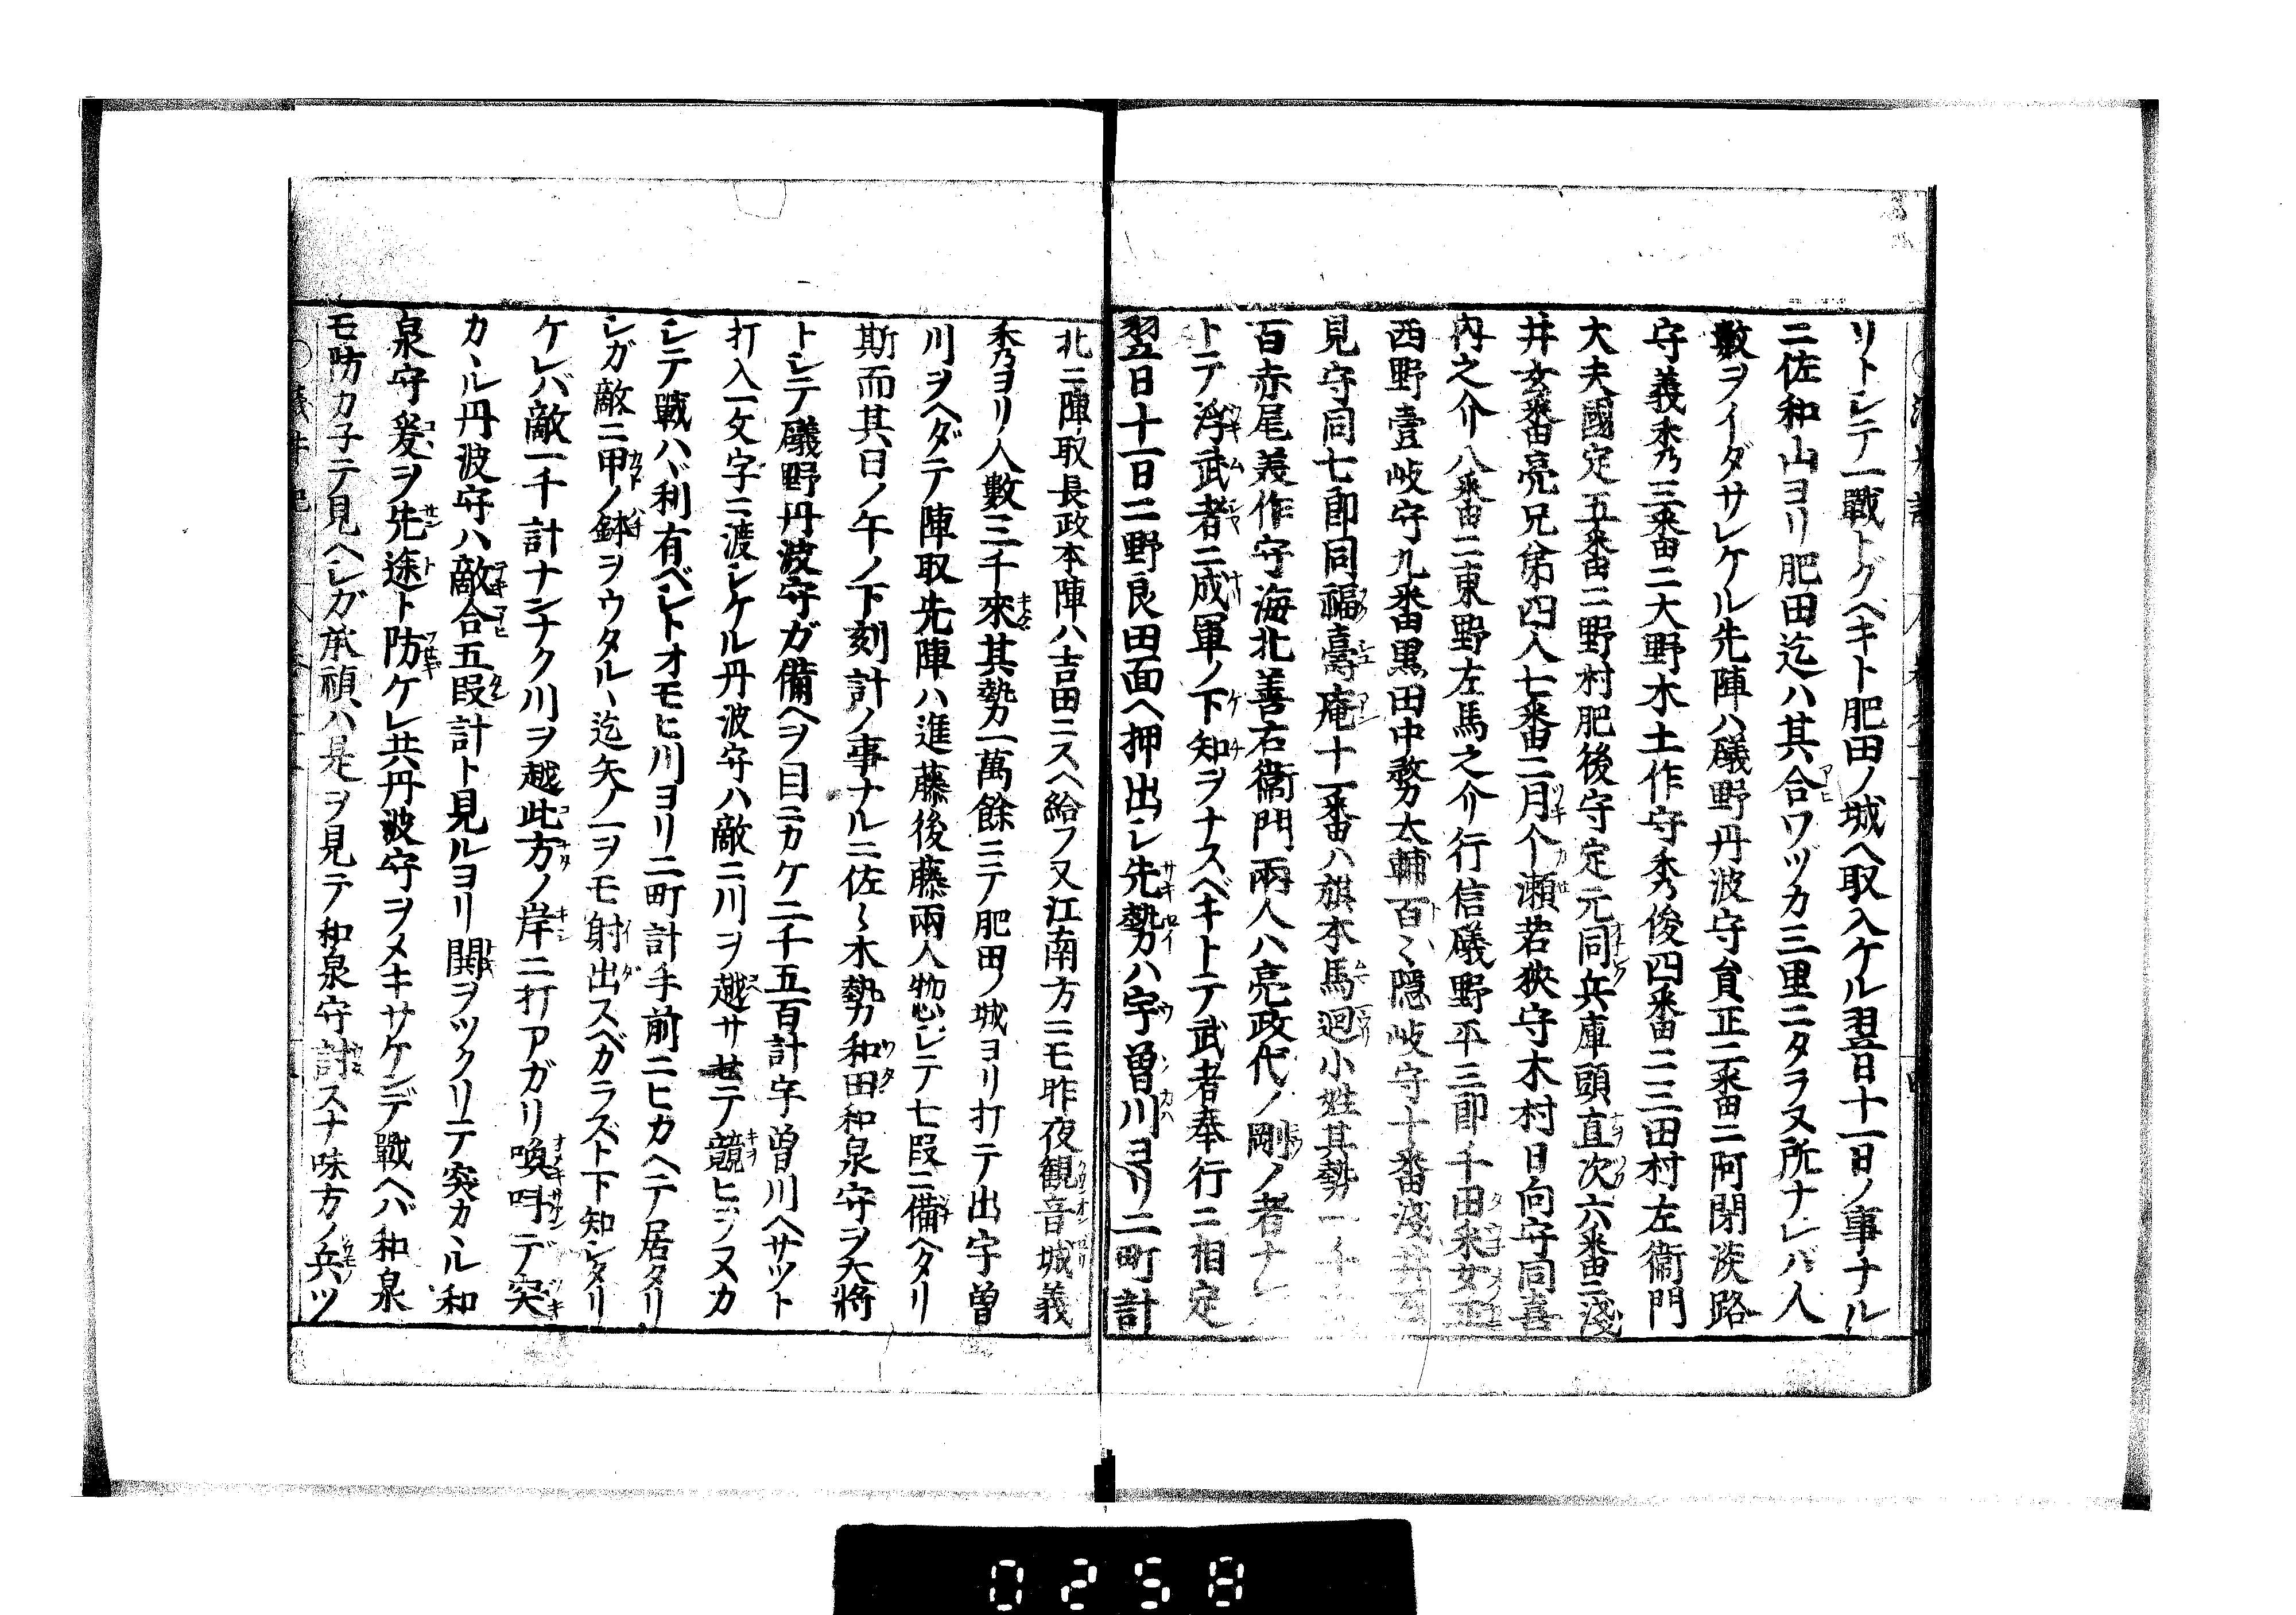 リトシテ一戰トグベキト肥田ノ城ヘ取入ケル翌日十一日ノ事ナル
ニ佐和山ヨリ肥田迄ハ其合ワヅカ三里ニタラヌ所ナレバ人
數ヲイダサレケル先陣ハ礒野丹波守員正二番ニ阿閉淡路
守義秀三番ニ大野木土作守秀俊四番ニ三田村左衞門
大夫國定五番ニ野村肥後守定元同兵庫頭直次六番ニ淺
井玄番亮兄弟四人七番ニ月个瀬若狹守木村日向守同喜
内之介八番ニ東野左馬之介行信礒野平三郎千田釆女正
西野壹岐守九番黒田中務太輔百〻隠岐守十番淺井石
見守同七郎同福壽庵十一番ハ旗本馬迴小姓其勢一千
百赤尾美作守海北善右衞門兩人ハ亮政代ノ剛ノ者ナレ
トテ浮武者ニ成軍ノ下知ヲナスベキトテ武者奉行ニ相定
翌日十一日ニ野良田面ヘ押出シ先勢ハ宇曽川ヨリ二町計
北ニ陣取長政本陣ハ吉田ニスヘ給フ又江南方ニモ昨夜観音城義
秀ヨリ人數三千來其勢一萬餘ニテ肥田ノ城ヨリ打テ出宇曽
川ヲヘダテ陣取先陣ハ進藤後藤兩人物惣シテ七叚ニ備ヘタリ
斯而其日ノ午ノ下刻計ノ事ナルニ佐〻木勢和田和泉守ヲ大將
トシテ礒野丹波守ガ備ヘヲ目ニカケ二千五百計宇曽川ヘサット
打入一文字ニ渡シケル丹波守ハ敵ニ川ヲ越サセテ競ヒヲヌカ
シテ戰ハヾ利有ベシトオモヒ川ヨリ二町計手前ニヒカヘテ居タリ
シガ敵ニ甲ノ鉢ヲウタルヽ迄矢ノ一ヲモ射出スベガラズト下知シタリ
ケレバ敵一千計ナンナク川ヲ越此方ノ岸ニ打アガリ喚叫デ突
カヽル丹波守ハ敵合五叚計ト見ルヨリ閧ヲツクリテ突カヽル和
泉守爰ヲ先途ト防ケレ共丹波守ヲメキサケンデ戰ヘバ和泉
モ防カ子テ見ヘシガ承禎ハ是ヲ見テ和泉守討スナ味方ノ兵ツ